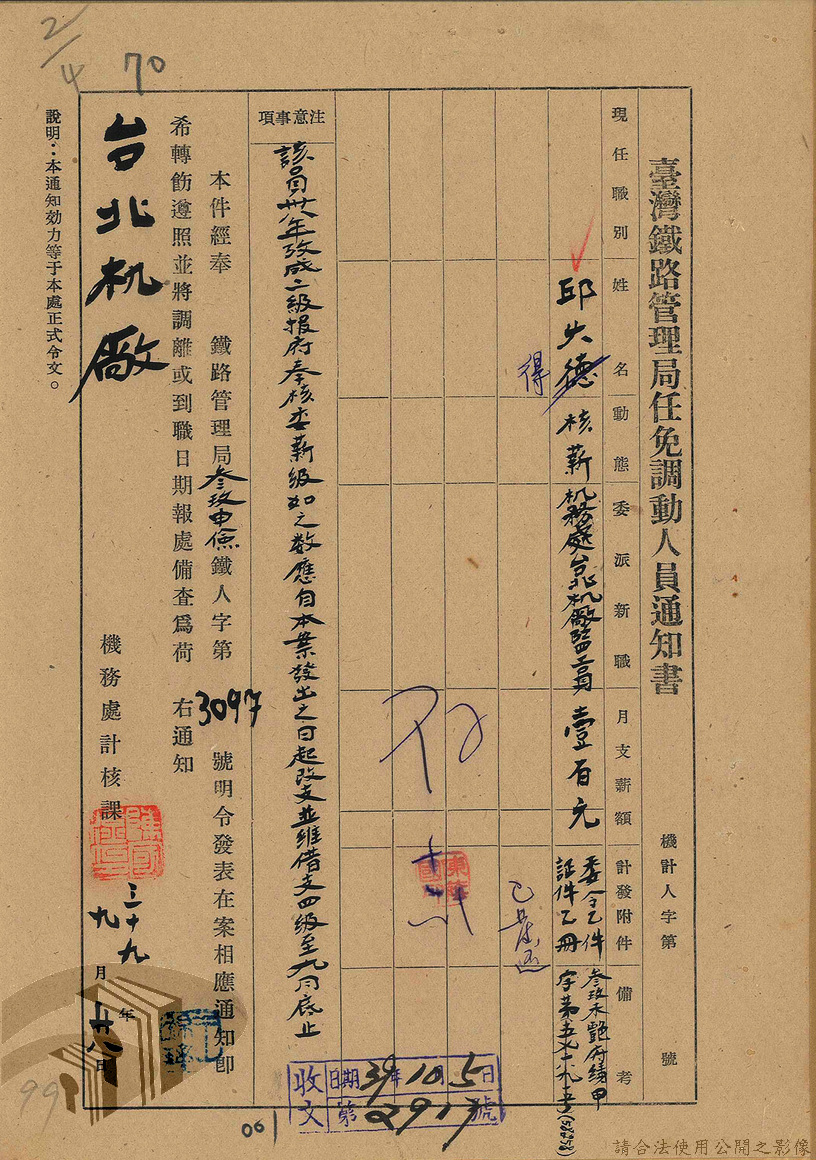 臺灣鐵路管理局任免調動人員通知書
機計人字第 號
現任職別
姓名
動態
委派新職
月支薪額
計發附件
備考
邱火德
得
核薪
机務處台北机廠監工員
壹百元
委令乙件
証件乙冊
叁玖未艷府績甲
(58258)
注意事項
該員卅八年攷成二級报府奉核委薪級如之数應自本案發出之日起改支並維借支四級至九月底止
本件經奉 鐵路管理局叁玖申 鐵人字第3097號明令發表在案相應通知即
希轉飭遵照並將調離或到職日期報處備查爲荷 右通知
台北机廠
機務處計核課
三十九年
九月廿八日
說明：本通知効力等于本處正式令文。
收文
日期39年10月5日
第2917號
2/4
70
99
001
請合法使用公開之影像